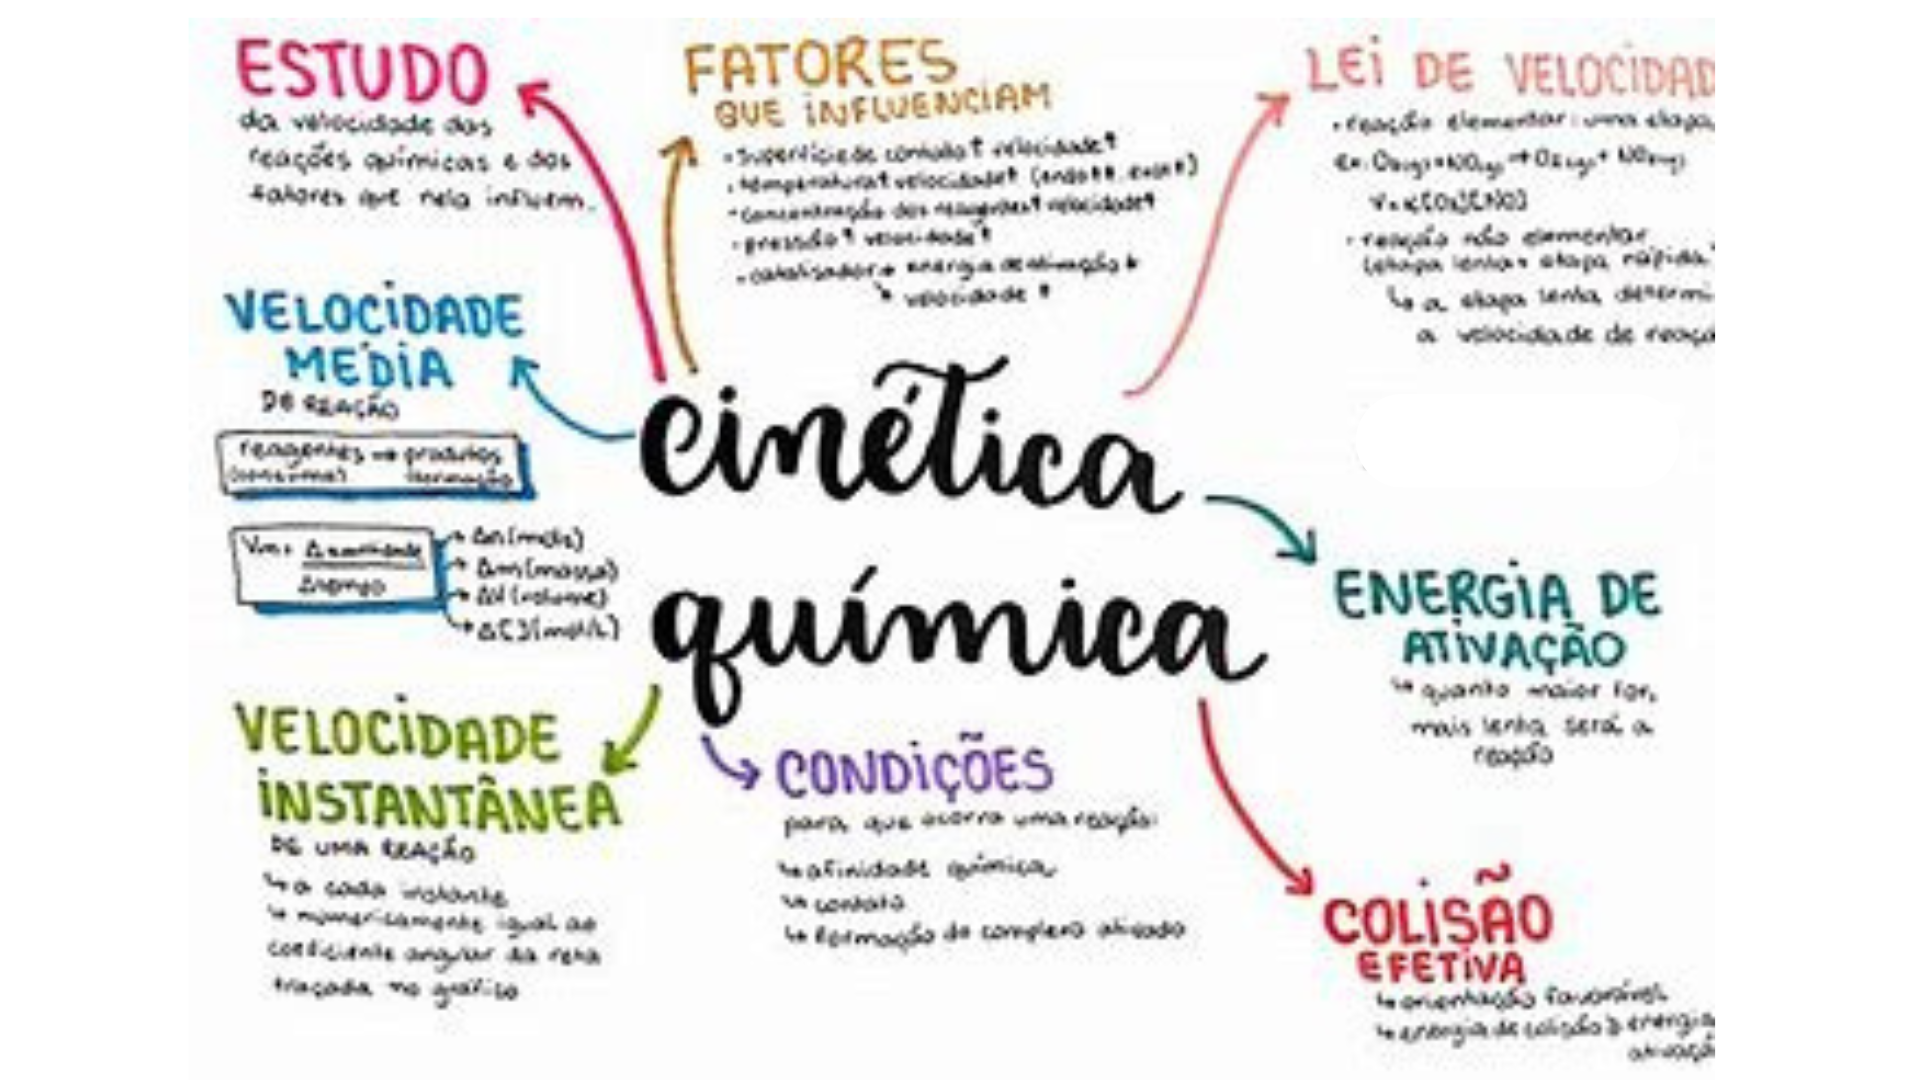 ESTUDO
da velocidade das
reações químicas e dos
fatores que nela influem.
FATORES
QUE INFLUENCIAM
• superfície de contato↑ velocidade↑
• temperatura↑ velocidade↑
• concentração dos reagentes↑ velocidade↑
• pressão↑ velocidade↑
• catalisador→ energia de ativação↓
↘ velocidade ↑
LEI DE VELOCIDAD
• reação elementar: uma etapa
v=k[O3][NO]
• reação não elementar
(etapa lenta+ etapa rápida
↳ a etapa lenta determi
a velocidade de reaçã
VELOCIDADE
MÉDIA
DE REAÇÃO
reagentes → produtos
(consumo) (formação)
Vm= Δquantidade
Δtempo
→ Δn(mols)
→ Δm(massa)
→ ΔV(volume)
→ Δ[ ](mol/L)
cinética
química
ENERGIA DE
ATIVAÇÃO
↳ quanto maior for,
mais lenta será a
reação
VELOCIDADE
INSTANTÂNEA
DE UMA REAÇÃO
↳ a cada instante
↳ numericamente igual ao
coeficiente angular da reta
traçada no gráfico
CONDIÇÕES
para que ocorra uma reação:
↳ afinidade química
↳ contato
↳ formação do complexo ativado
COLISÃO
EFETIVA
↳ orientação favorável
↳ energia de colisão ≥ energia
ativaçã